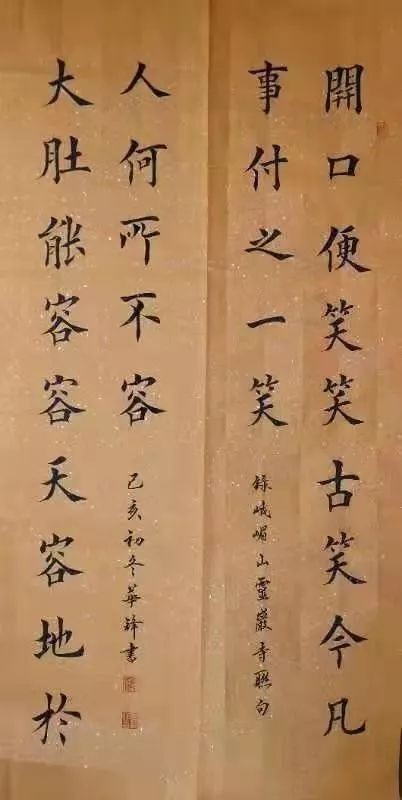 開口便笑笑古笑今凡
事付之一笑
錄峨嵋山靈巖寺聯句
大肚能容容天容地於
人何所不容
己亥初冬華鋒書